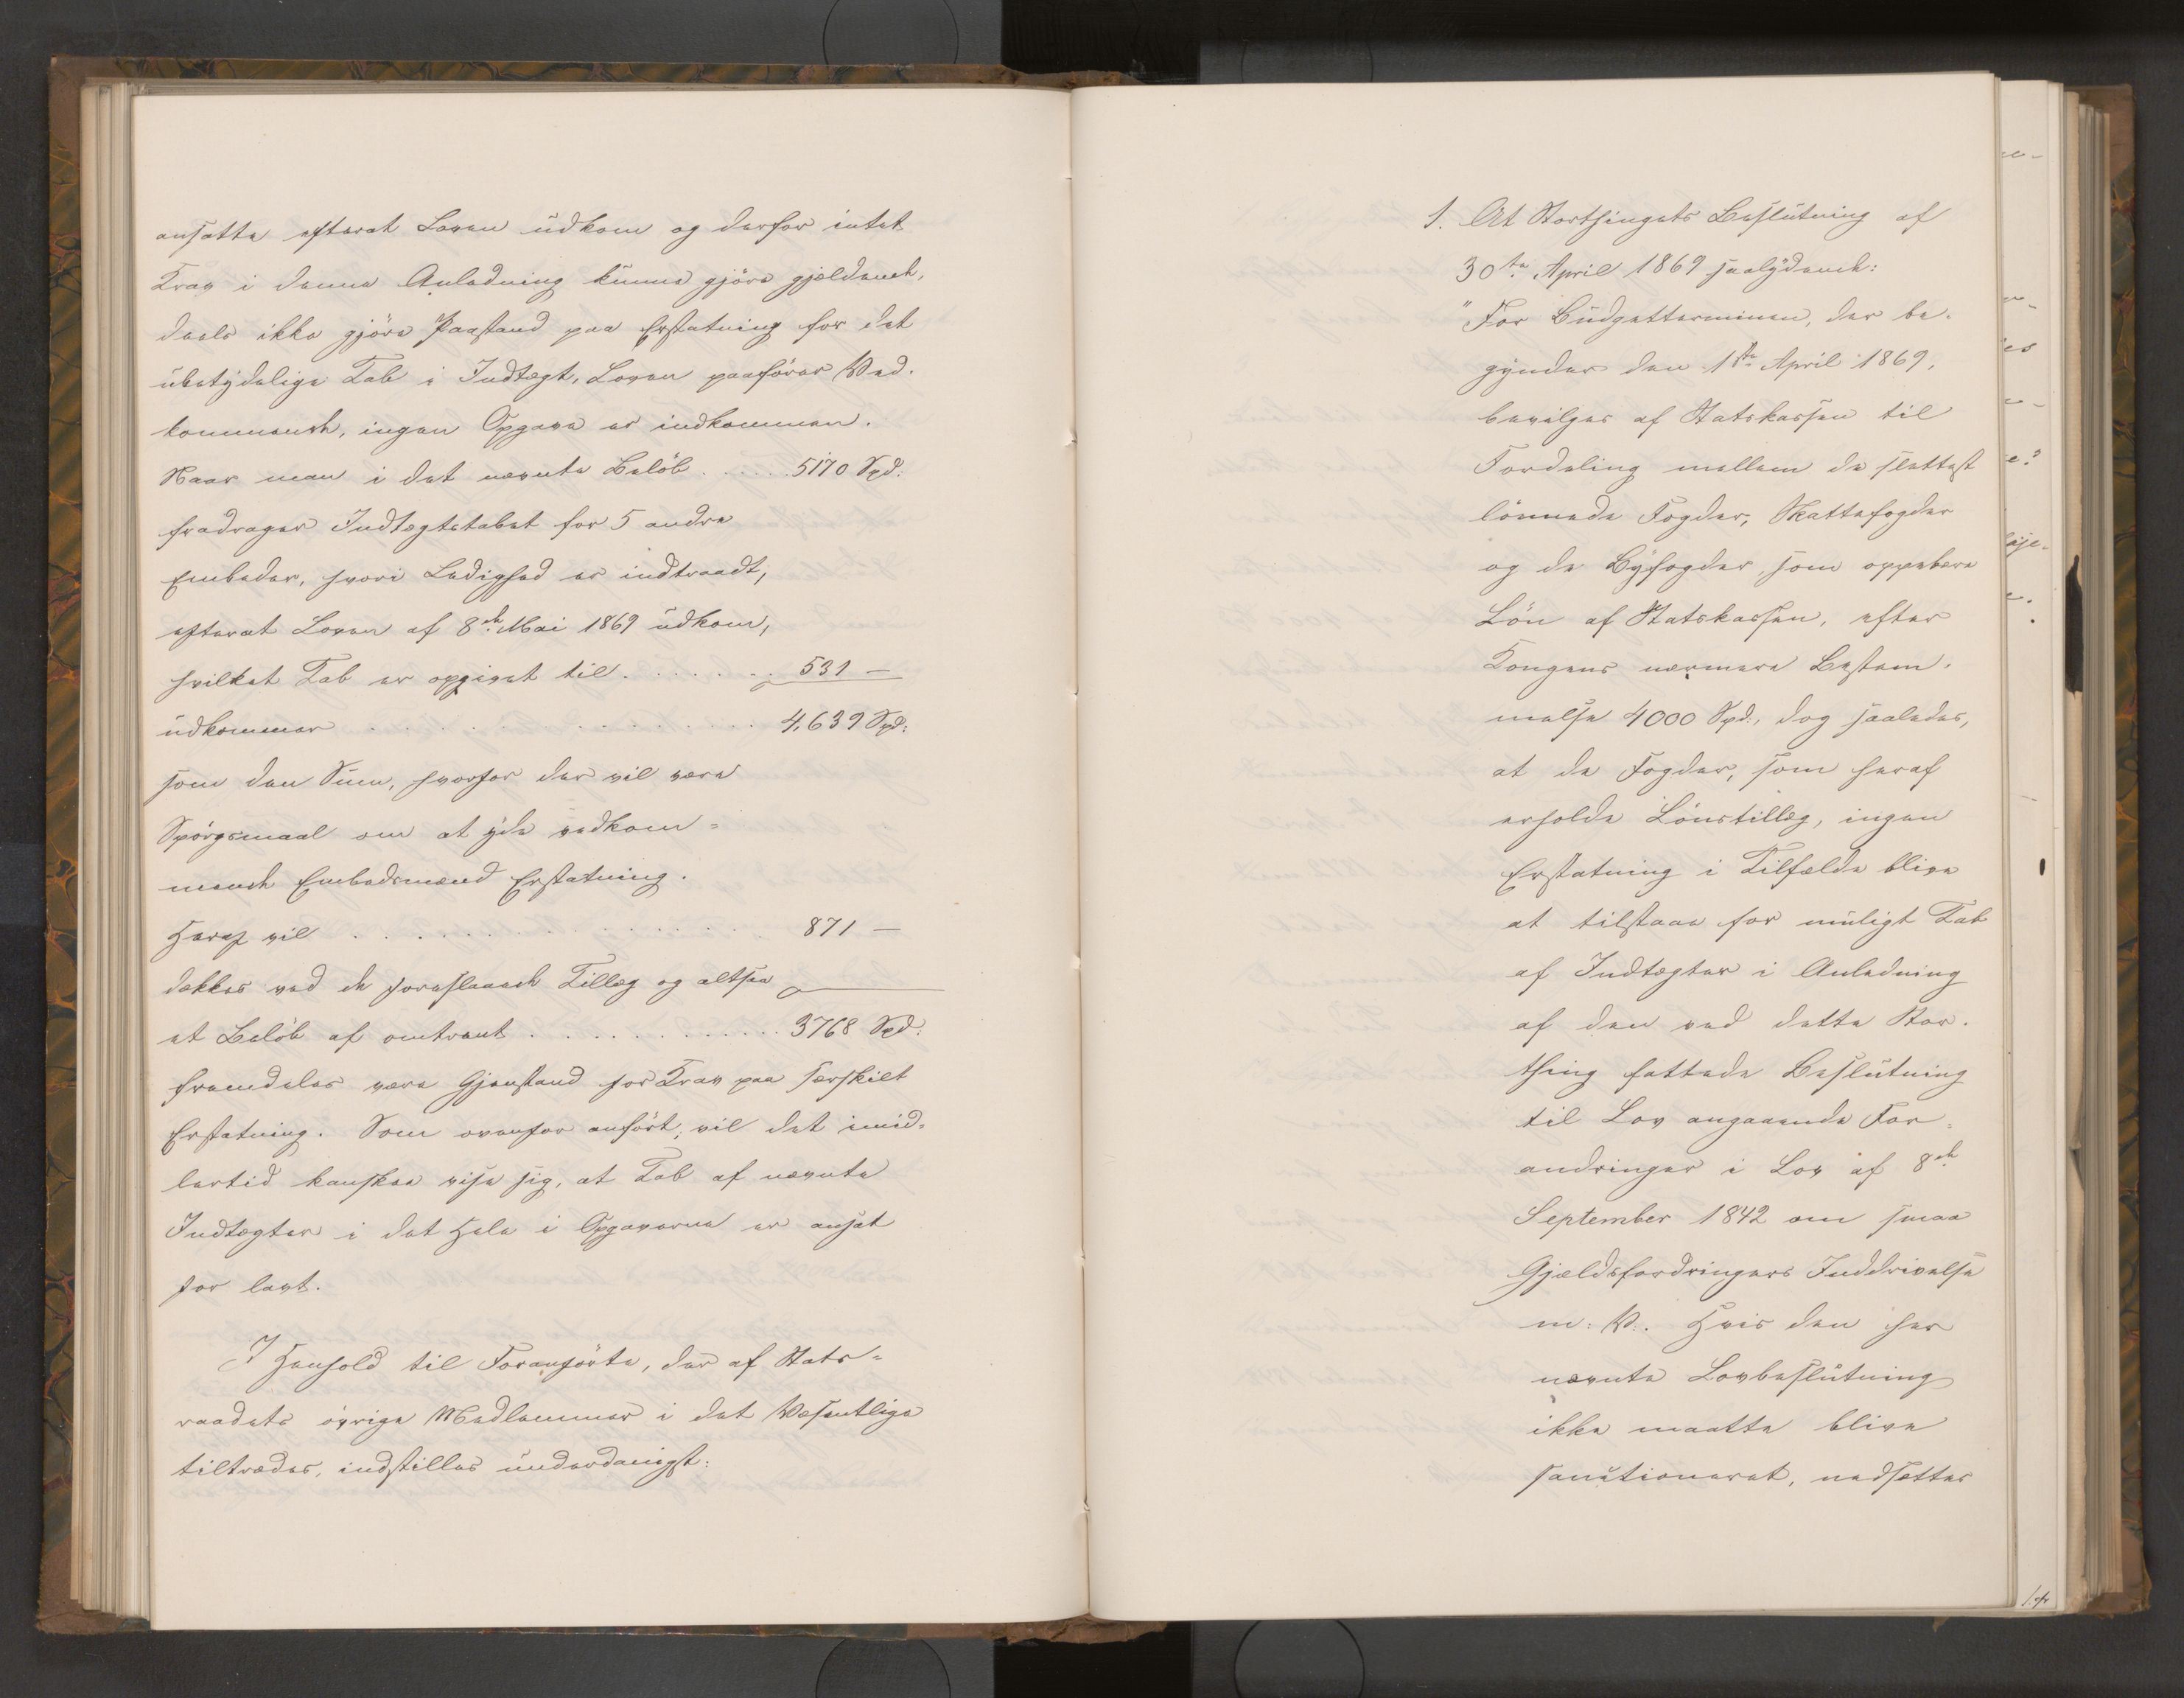 ansatte efterat Loven udkom og derfor intet
Krav i denne Anledning kunne gjöre gjeldende,
deels ikke gjöre Paastand paa Erstatning for det
ubetydelige Tab i Indtægt, Loven paaförer Ved-
kommende, ingen Opgave er indkommen.
Naar man i det nævnte Belöb ..... 5170 Spd.
fradrager Indtægtstabet for 5 andre
Embeder, hvori Ledighed er indtraadt,
efterat Loven af 8de Mai 1869 udkom,
hvilket Tab er opgivet til ....... 531 —
udkommer .......... 4,639 Spd:
som den Sum, hvorfor der vil være
Spörgsmaal om at yde vedkom-
mende Embedsmænd Erstatning.
Heraf vil .......... 871 —
dækkes ved de foreslaaede Tillæg og altsaa
et Belöb af omtrent .......... 3768 Spd:
fremdeles være Gjenstand for Krav paa særskilt
Erstatning. Som ovenfor anfört, vil det imid-
lertid kanskee vise sig, at Tab af nævnte
Indtægter i det Hele i Opgaverne er ansat
for lavt.
I Henhold til Foranförte, der af Stats-
raadets övrige Medlemmer i det Væsentlige
tiltrædes, indstilles underdanigst:
1. At Storthingets Beslutning af
30te April 1869 saalydende:
"For Budgetterminen, der be-
gynder den 1ste April 1869,
bevilges af Statskassen til
Fordeling mellem de slettest
lönnede Fogder, Skattefogder
og de Byfogder, som oppebære
Lön af Statskassen, efter
Kongens nærmere Bestem-
melse 4000 Spd., dog saaledes,
at de Fogder, som heraf
erholde Lönstillæg, ingen
Erstatning i Tilfælde blive
at tilstaae for muligt Tab
af Indtægter i Anledning
af den ved dette Stor-
thing fattede Beslutning
til Lov angaaende For-
andringer i Lov af 8de
September 1842 om smaa
Gjældsfordringers Inddrivelse
m: V:. Hvis den her
nævnte Lovbeslutning
ikke maatte blive
sanctioneret, nedsættes